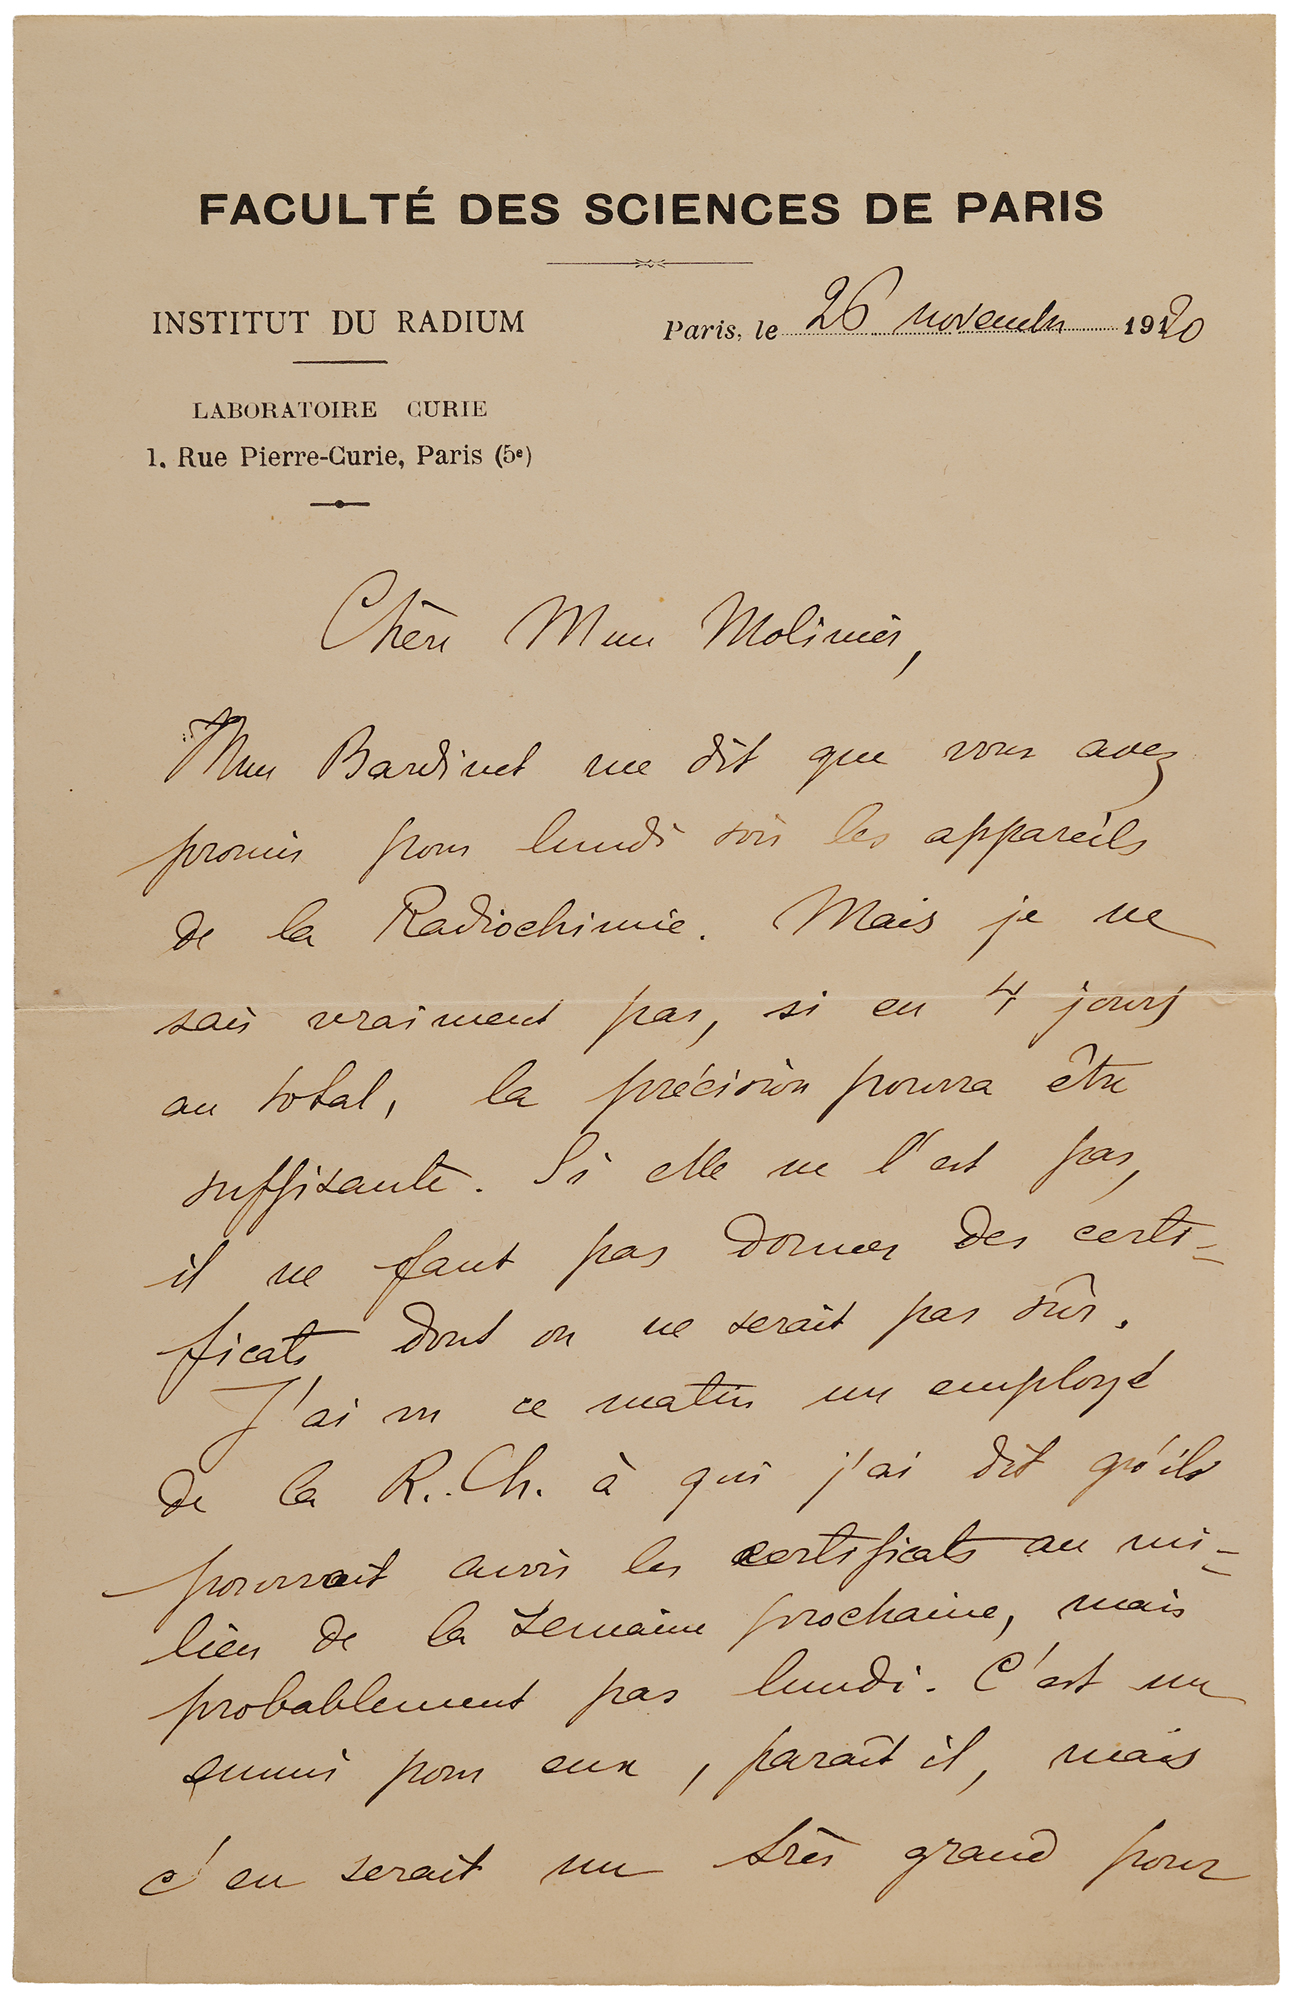 FACULTÉ DES SCIENCES DE PARIS
INSTITUT DU RADIUM
Paris, le 26 novembre 1920
LABORATOIRE CURIE
1, Rue Pierre-Curie, Paris (5e)
Chère Mme Molinier,
Mme Bardinet me dit que vous avez
promis pour lundi soir les appareils
de la Radiochimie. Mais je ne
sais vraiment pas, si en 4 jours
au total, la précision pourra être
suffisante. Si elle ne l'est pas,
il ne faut pas donner des certi-
ficats dont on ne serait pas sûr.
J'ai vu ce matin un employé
de la R. Ch. à qui j'ai dit qu'ils
pourrait avoir les certificats au mi-
lieu de la semaine prochaine, mais
probablement pas lundi. C'est un
ennui pour eux, paraît il, mais
c'en serait un très grand pour